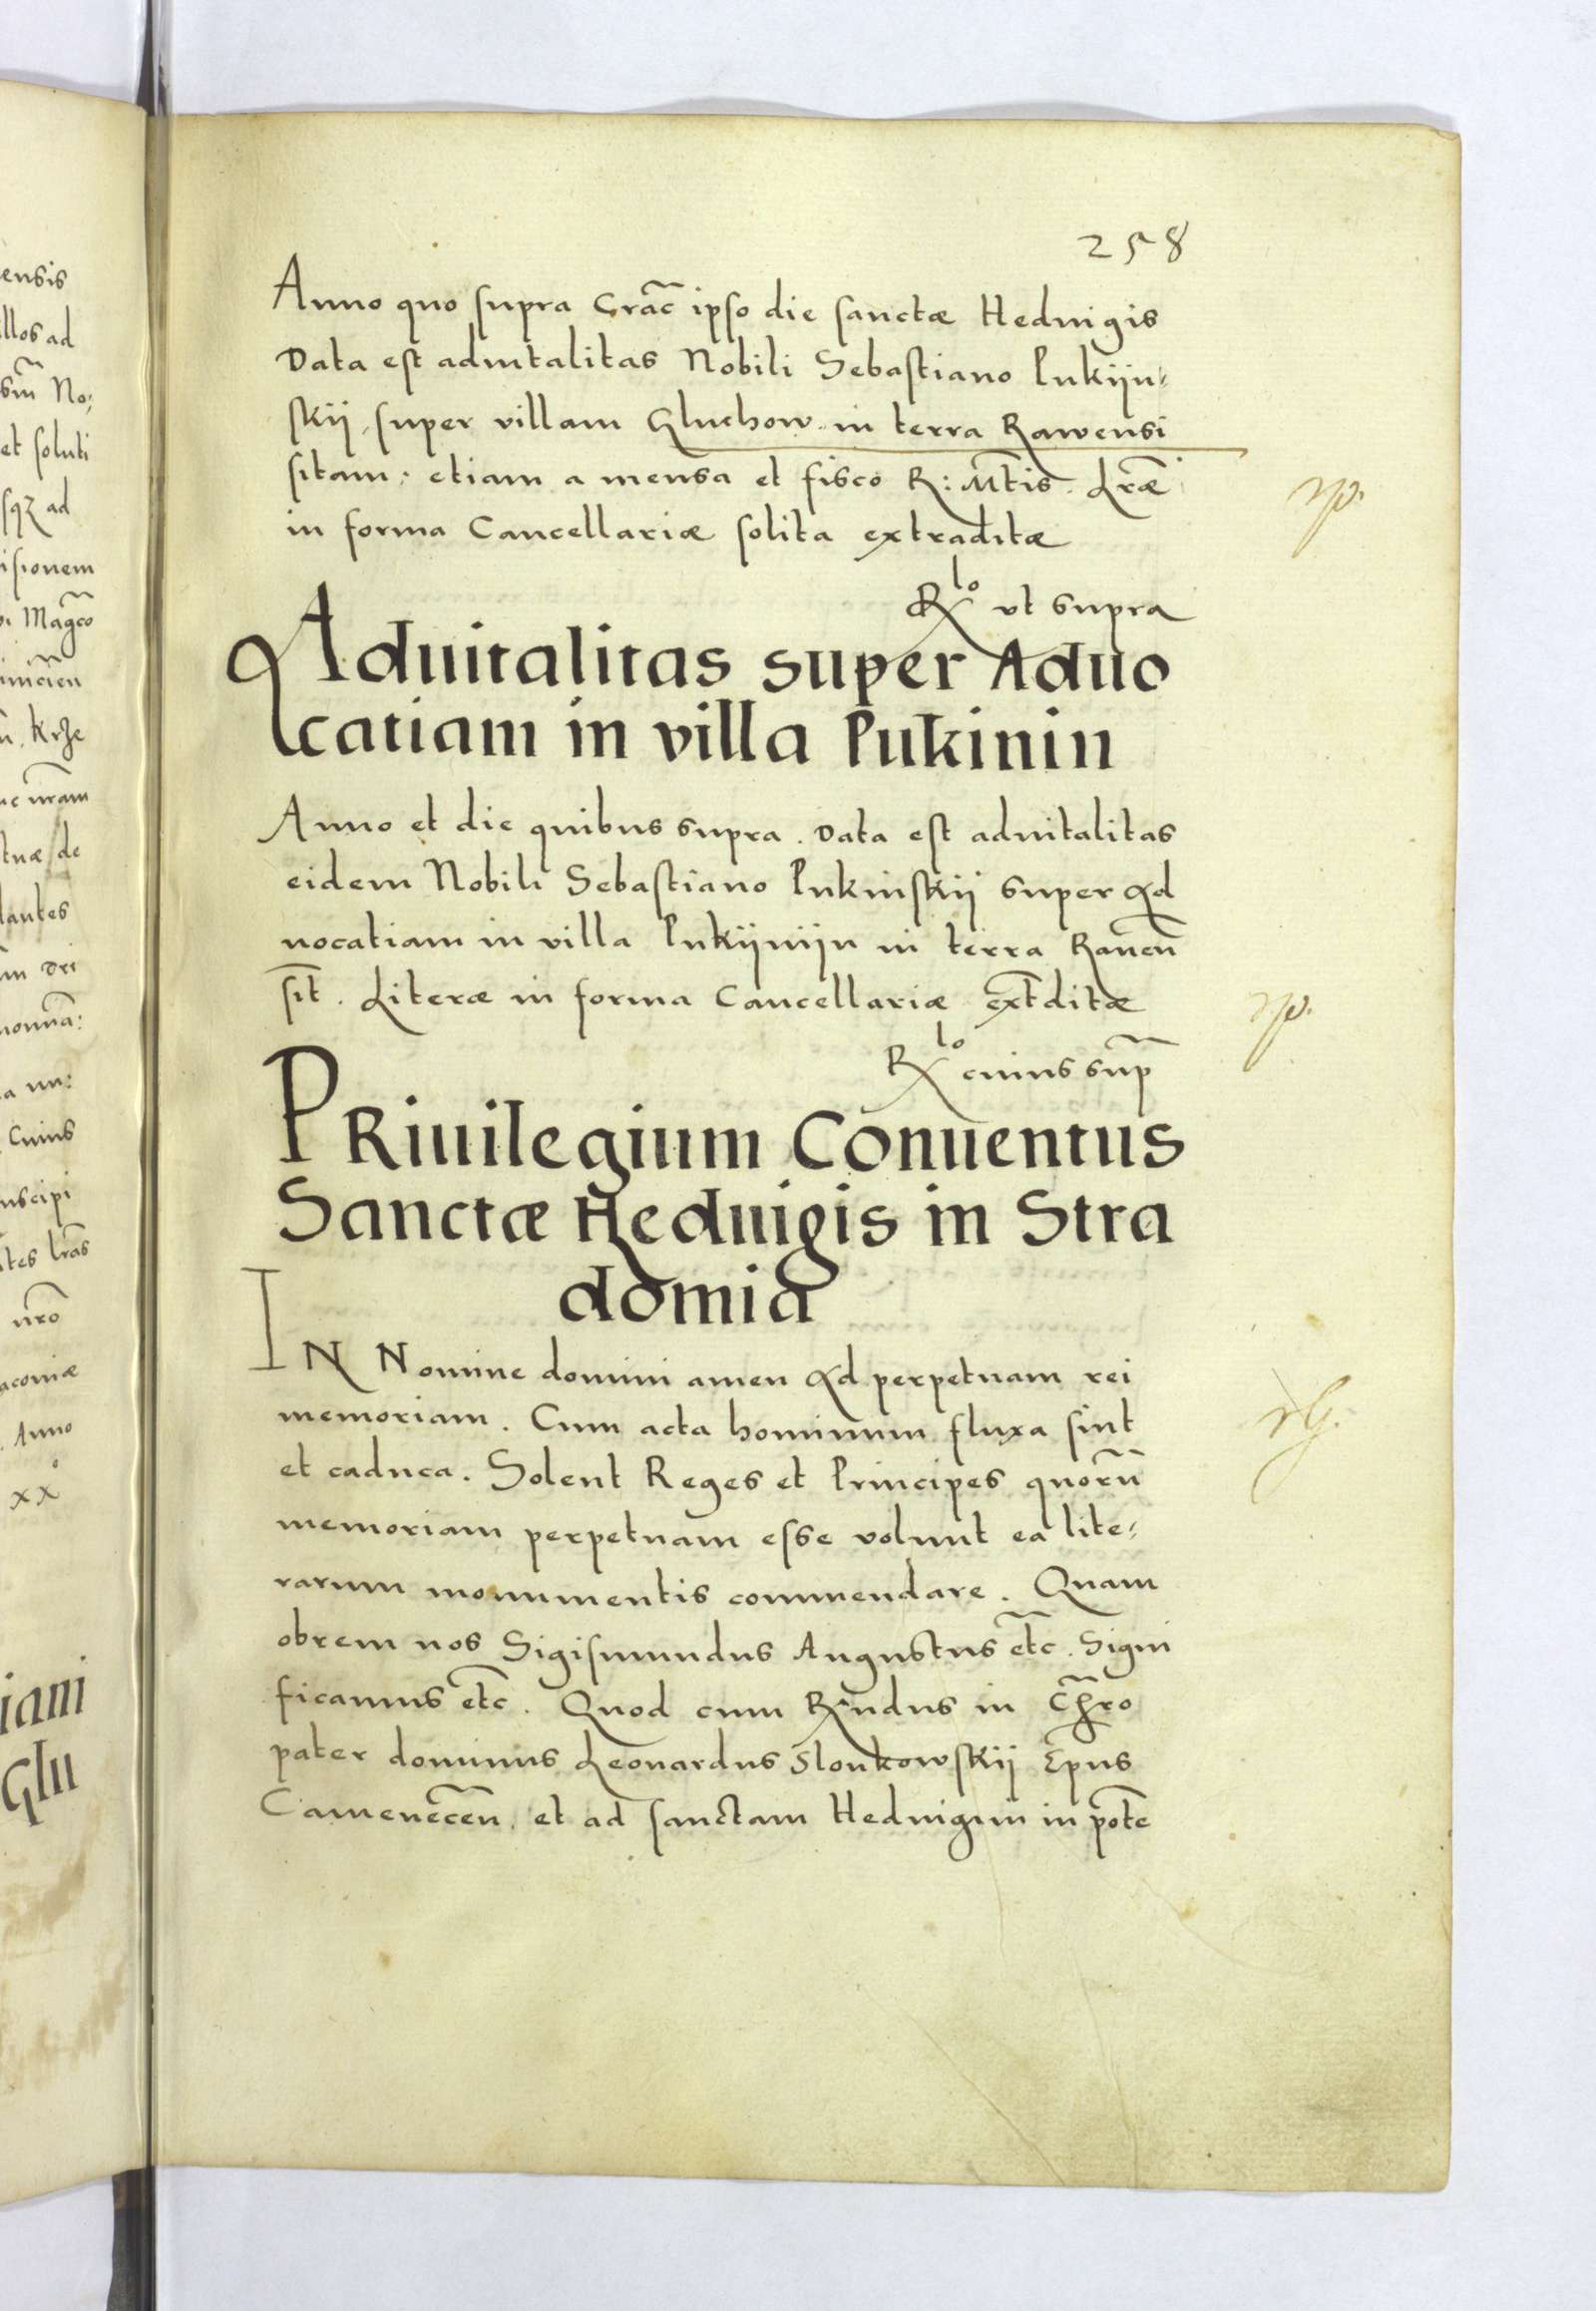 258
Anno quo supra Crac̃ ipso die sanctæ Heduigis
Data est aduitalitas Nobili Sebastiano Pukijn⸗
skij, super villam Gluchow in terra Rawensi
sitam: etiam a mensa et fisco R: Mt̃is. Lr̃æ
in forma Cancellariæ solita extraditæ
Rlo vt supra
Aduitalitas super Aduo
catiam in villa Pukinin
Anno et die quibus supra. Data est aduitalitas
eidem Nobili Sebastiano Pukinskij super Ad
uocatiam in villa Pukijnijn in terra Rauen̄
sit̄. Literæ in forma Cancellariæ ext̄ditæ
Rlo cuius sup̄
PRiuilegium Conuentus
Sanctæ Heduigis in Stra
domia
IN Nomine domini amen Ad perpetuam rei
memoriam. Cum acta hominum fluxa sint
et caduca. Solent Reges et Principes quorū
memoriam perpetuam esse volunt ea lite⸗
rarum monumentis commendare. Quam
obrem nos Sigismundus Augustus et̄c. Signi
ficamus et̄c. Quod cum R̃ndus in Chr̄o
pater dominus Leonardus Slonkowskij Epus
Camenecen̄. et ad sanctam Heduigim in pot̄e
ensis
llos ad
sm̃ No;
et soluti
sqz ad
isionem
Mag̃co
Krze
de
dantes
Cuius
uscipi
tes lr̃as
nr̃o
acouiæ
Anno
xx
iani
Glu